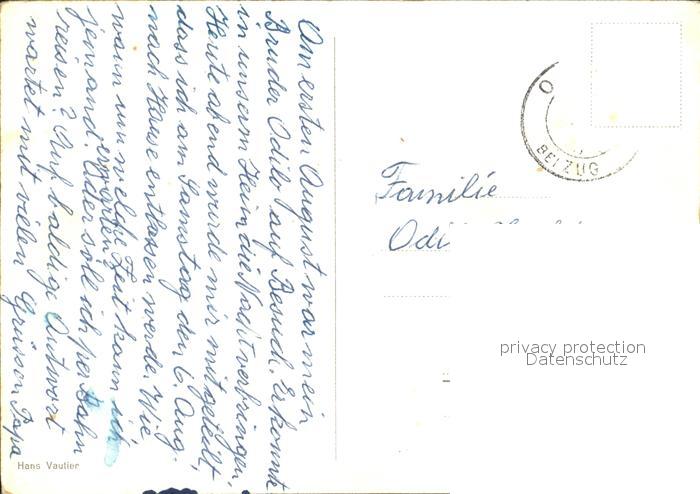 Am ersten August war mein
Bruder Odilo auf Besuch. Er konnte
in unserm Heim die Nacht verbringen.
Heute abend wurde mir mitgeteilt,
dass ich am Samstag den 6. Aug.
nach Hause entlassen werde. Wie
wann um welche Zeit kann ich
jemand erwarten? Oder soll ich per Bahn
reisen? Auf baldige Antwort
wartet mit vielen Grüssen Papa
Hans Vautier
BELZUG
Familie
Odi
privacy protection
Datenschutz